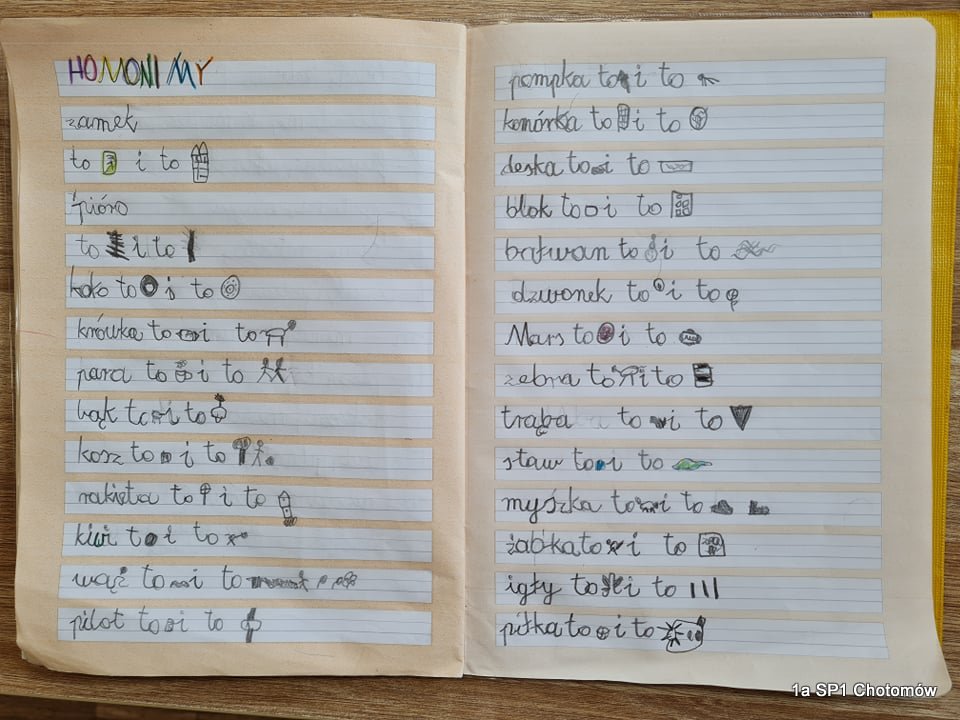 HOMONIMY
zamek
to i to
pióro
to i to
koło to i to
krówka to i to
para to i to
bąk to i to
kosz to i to
rakieta to i to
kiwi to i to
wąż to i to
pilot to i to
pompka to i to
komórka to i to
deska to i to
blok to i to
bałwan to i to
dzwonek to i to
Mars to i to
zebra to i to
trąba to i to
staw to i to
myszka to i to
żabka to i to
igły to i to
piłka to i to
1a SP1 Chotomów